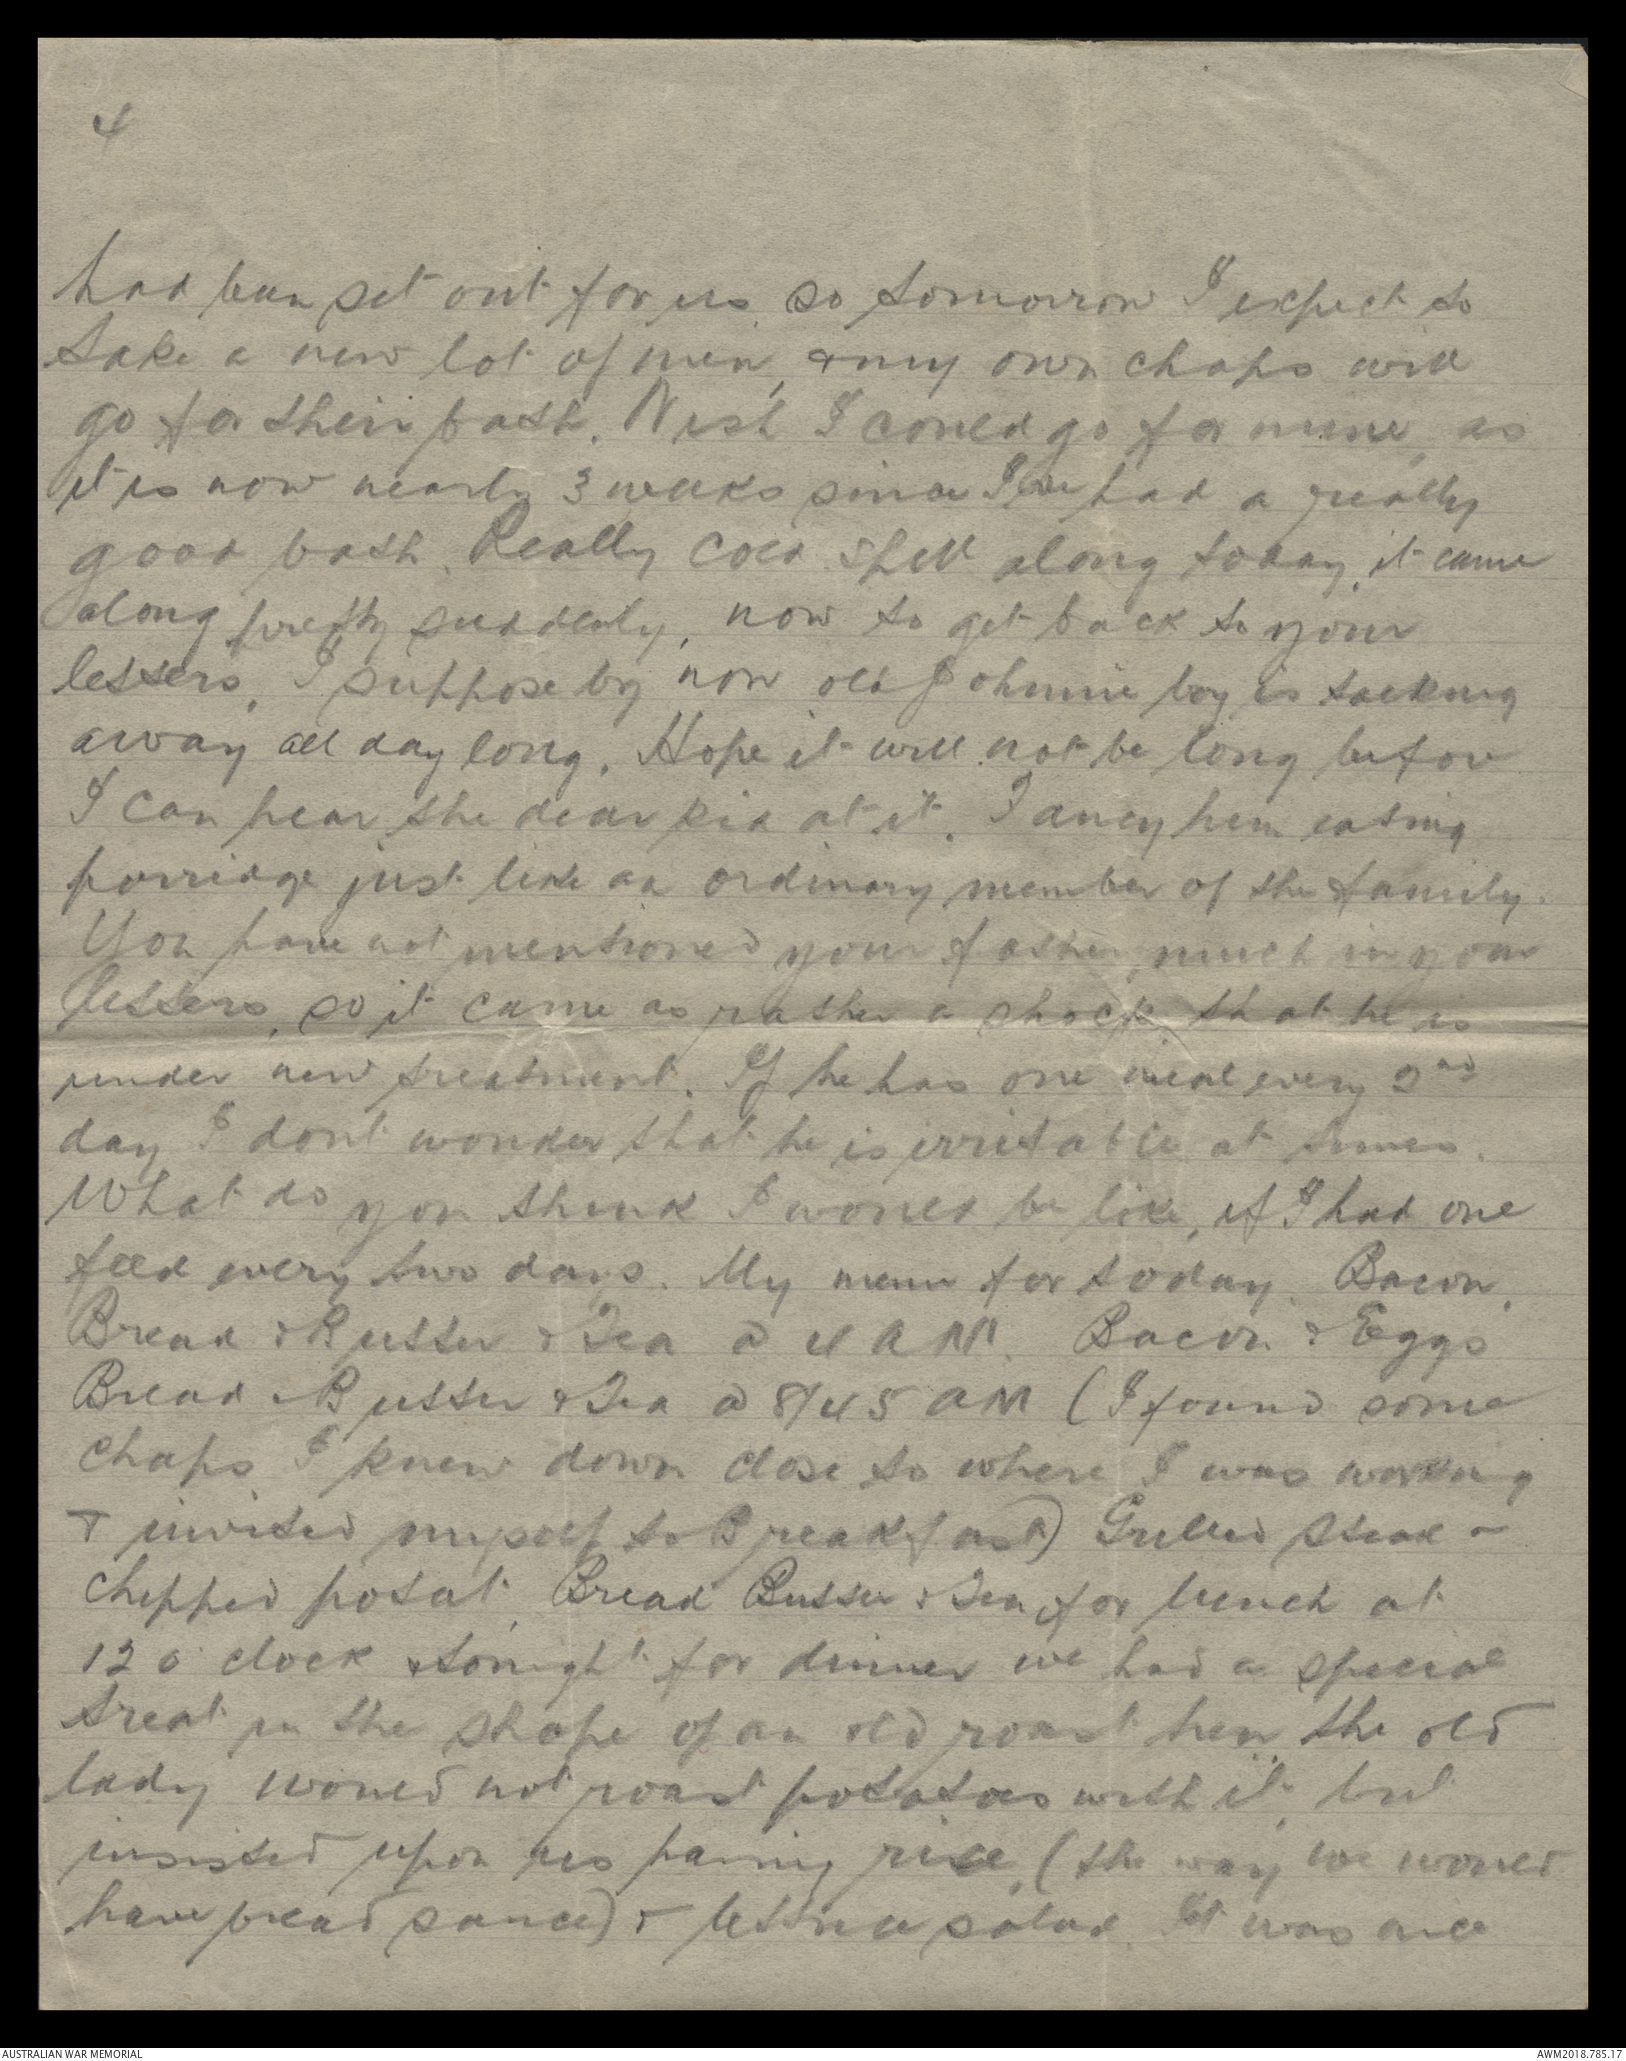 4
had been set out for us so tomorrow I expect to
take a new lot of men, & my own chaps will
go for their bath. Wish I could go for mine, as
it is now nearly 3 weeks since I've had a really
good bath. Really cold spell along today, it came
along pretty suddenly, now to get back to your
letters, I suppose by now old Johnnie boy is talking
away all day long. Hope it will not be long before
I can hear the dear kid at it. Fancy him eating
porridge just like an ordinary member of the family.
You have not mentioned your father much in your
letters, so it came as rather a shock that he is
under new treatment. If he has one meal every 2nd
day I dont wonder that he is irritable at times.
What do you think I would be like, if I had one
feed every two days. My menu for today. Bacon,
Bread & Butter & Tea @ 4 AM. Bacon & Eggs
Bread & Butter & Tea @ 8/45 AM (I found some
chaps I knew down close to where I was working
& invited myself to Breakfast) Grilled Steak &
chipped potat, Bread Butter & Tea for lunch at
12 o'clock & tonight for dinner we had a special
treat in the shape of an old roast hen the old
lady would not roast potatoes with it, but
insisted upon us having rice, (the way we would
have bread sauce) & lettuce salad. It was nice
AUSTRALIAN WAR MEMORIAL
AWM2018.785.17